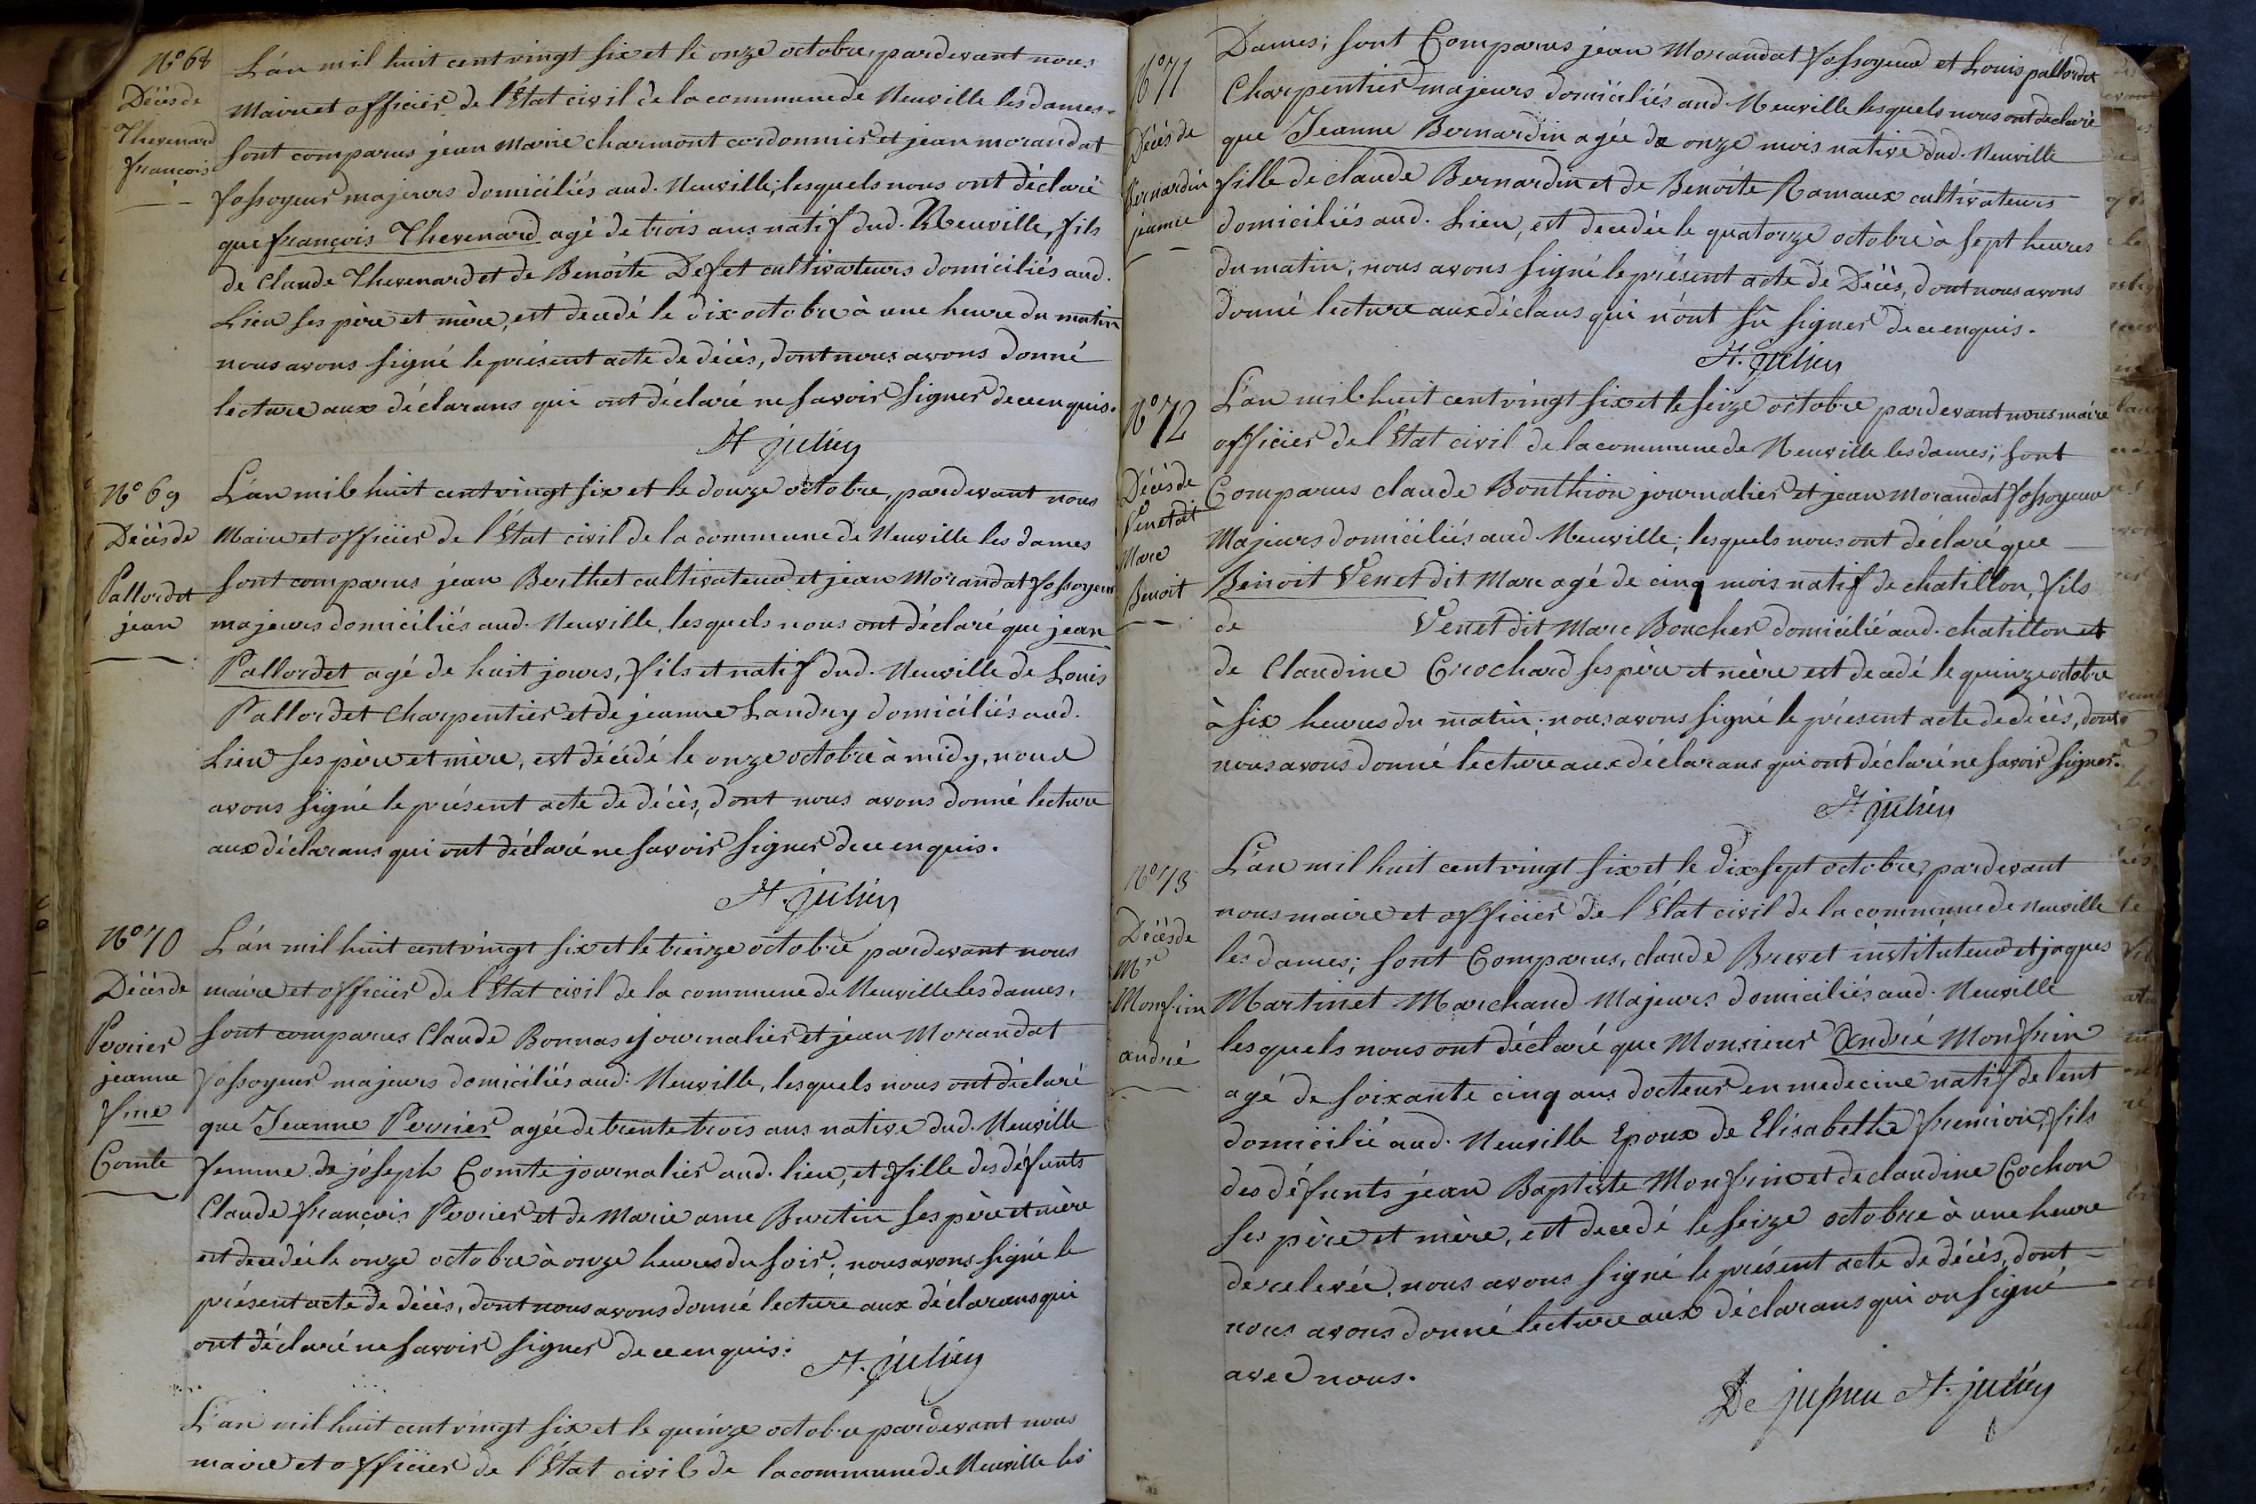 N° 68
Décès de
Thevenard
françois
L'an mil huit cent vingt six et le onze octobre, pardevant nous
Maire et officier de l'État civil de la commune de Neuville les dames
sont comparus jean marie charmont cordonnier et jean morandat
fossoyeur majeurs domiciliés aud. Neuville, lesquels nous ont déclaré
que françois Thevenard agé de trois ans natif dud. Neuville, fils
de Claude Thevenard et de Benoite Defet cultivateurs domiciliés aud.
Lieu ses père et mère, est decedé le dix octobre à une heure du matin
nous avons signé le présent acte de décès, dont nous avons donné
lecture aux déclarans qui ont déclaré ne savoir signer de ce enquis.
St julien
N° 69
Décès de
Pallordet
jean
L'an mil huit cent vingt six et le douze octobre, pardevant nous
Maire et officier de l'État civil de la commune de Neuville les dames
sont comparus jean Berthet cultivateur et jean Morandat fossoyeur
majeurs domiciliés aud. Neuville, lesquels nous ont déclaré que jean
Pallordet agé de huit jours, fils et natif dud. Neuville de Louis
Pallordet charpentier et de jeanne Landry domiciliés aud.
Lieu ses père et mère, est décédé le onze octobre à midy, nous
avons signé le présent acte de décès, dont nous avons donné lecture
aux déclarans qui ont déclaré ne savoir signer de ce enquis.
St. julien
N° 70
Décès de
Perrier
jeanne
fme
Comte
L'an mil huit cent vingt six et le treize octobre pardevant nous
maire et officier de l'État civil de la commune de Neuville les dames,
sont comparus Claude Bonnas journalier et jean Morandat
fossoyeur majeurs domiciliés aud. Neuville, lesquels nous ont déclaré
que Jeanne Perrier agée de trente trois ans native dud. Neuville
femme de joseph Comte journalier aud. lieu, et fille des défunts
Claude françois Perrier et de Marie anne Burtin ses père et mère
est decedée le onze octobre à onze heures du soir; nous avons signé le
présent acte de décès, dont nous avons donné lecture aux déclarans qui
ont déclaré ne savoir signer de ce enquis:
St. julien
L'an mil huit cent vingt six et le quinze octobre pardevant nous
maire et officier de l'État civil de la commune de Neuville les
N° 71
Décès de
Bernardin
jeanne
Dames; sont Comparus jean Morandat fossoyeur et Louis pallordet
Charpentier majeurs domiciliés aud. Neuville lesquels nous ont declaré
que Jeanne Bernardin agée de onze mois native dud. Neuville
fille de claude Bernardin et de Benoite Ramaux cultivateurs
domiciliés aud. Lieu, est decedée le quatorze octobre à sept heures
du matin; nous avons signé le présent acte de Décès, dont nous avons
donné lecture aux déclans qui n'ont sû signer de ce enquis.
St. julien
N° 72
Décès de
Venet dit
Marc
Benoit
L'an mil huit cent vingt six et le seize octobre pardevant nous maire
officier de l'État civil de la commune de Neuville les dames; sont
Comparus claude Bonthion journalier et jean Morandat fossoyeur
Majeurs domiciliés aud. Neuville; lesquels nous ont déclaré que
Benoit Venet dit Marc agé de cinq mois natif de chatillon, fils
de Venet dit Marc Boucher domicilié aud. chatillon et
de Claudine Crochard ses père et mère est decedé le quinze octobre
à six heures du matin; nous avons signé le présent acte de décès, dont
nous avons donné lecture aux déclarans qui ont déclaré ne savoir signer.
St julien
N° 73
Décès de
Mr
Monfrin
andré
L'an mil huit cent vingt six et le dix sept octobre, pardevant
nous maire et officier de l'État civil de la commune de Neuville
les dames; sont Comparus, claude Brevet instituteur et jaques
Martinet Marchand Majeurs domiciliés aud. Neuville
lesquels nous ont déclaré que Monsieur André Monfrin
agé de soixante cinq ans docteur en medecine natif de lent
domicilié aud. Neuville Epoux de Elisabeth fremion, fils
des défunts jean Baptiste Monfrin et de claudine Cochon
ses père et mère, est decedé le seize octobre à une heure
de relevée, nous avons signé le présent acte de décès, dont
nous avons donné lecture aux déclarans qui on signé
avec nous.
De jussieu St. julien